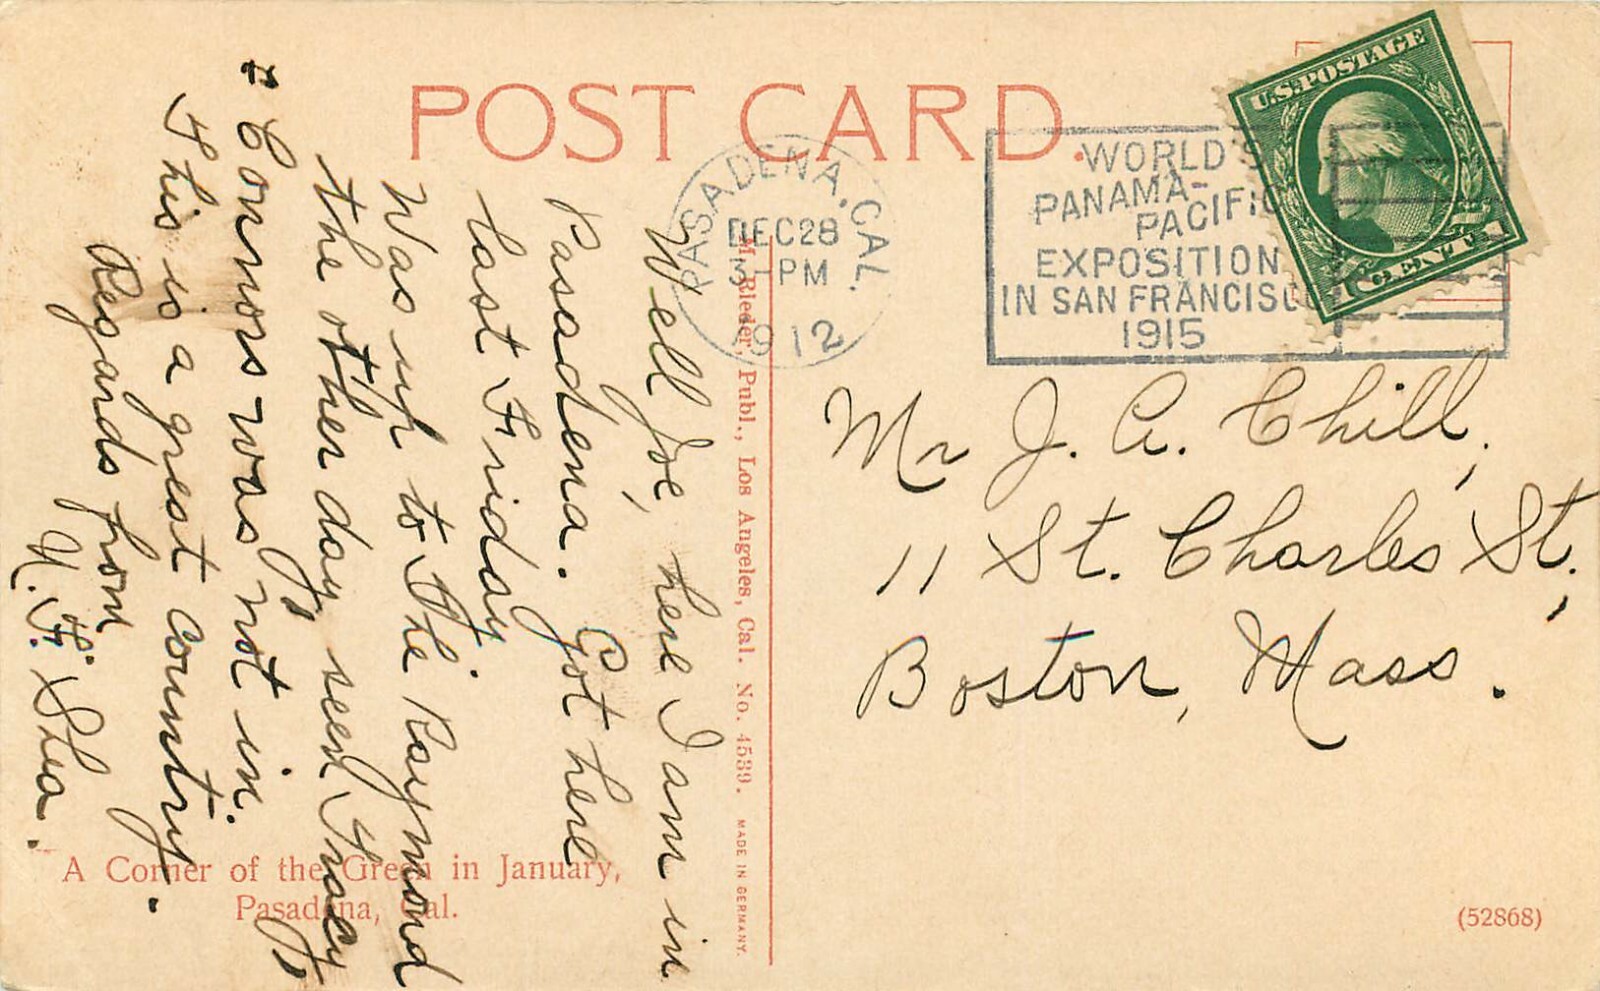 POST CARD.
PASADENA, CAL.
DEC 28
3 - PM
1912
WORLD'S
PANAMA-
PACIFIC
EXPOSITION
IN SAN FRANCISCO
1915
U.S. POSTAGE
1 CENT 1
Well Joe, here I am in
Pasadena. Got here
last Friday
Was up to the Raymond
the other day seen Tracy
Connors was not in.
This is a great country.
Regards from
Shea.
Mr J. A. Chill,
11 St. Charles St.,
Boston, Mass.
M. Rieder, Publ., Los Angeles, Cal. No. 4539. MADE IN GERMANY.
A Corner of the Green in January,
Pasadena, Cal.
(52868)